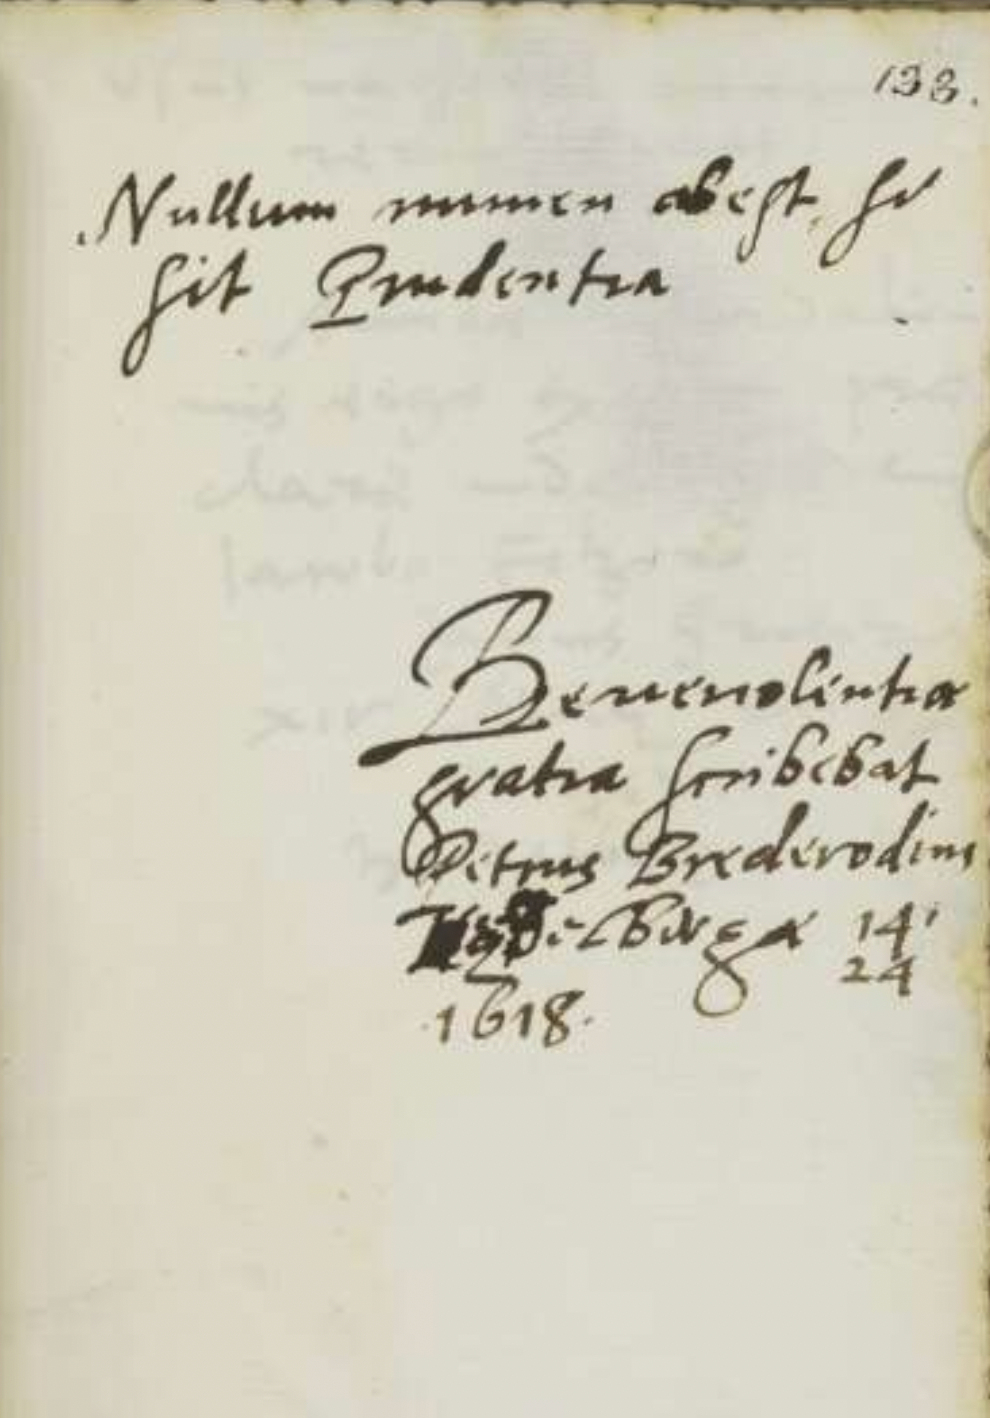 133.
Nullum numen abest, si
sit Prudentia
Benevolentiæ
gratia scribebat
Petrus Brederodius
14
24
1618.